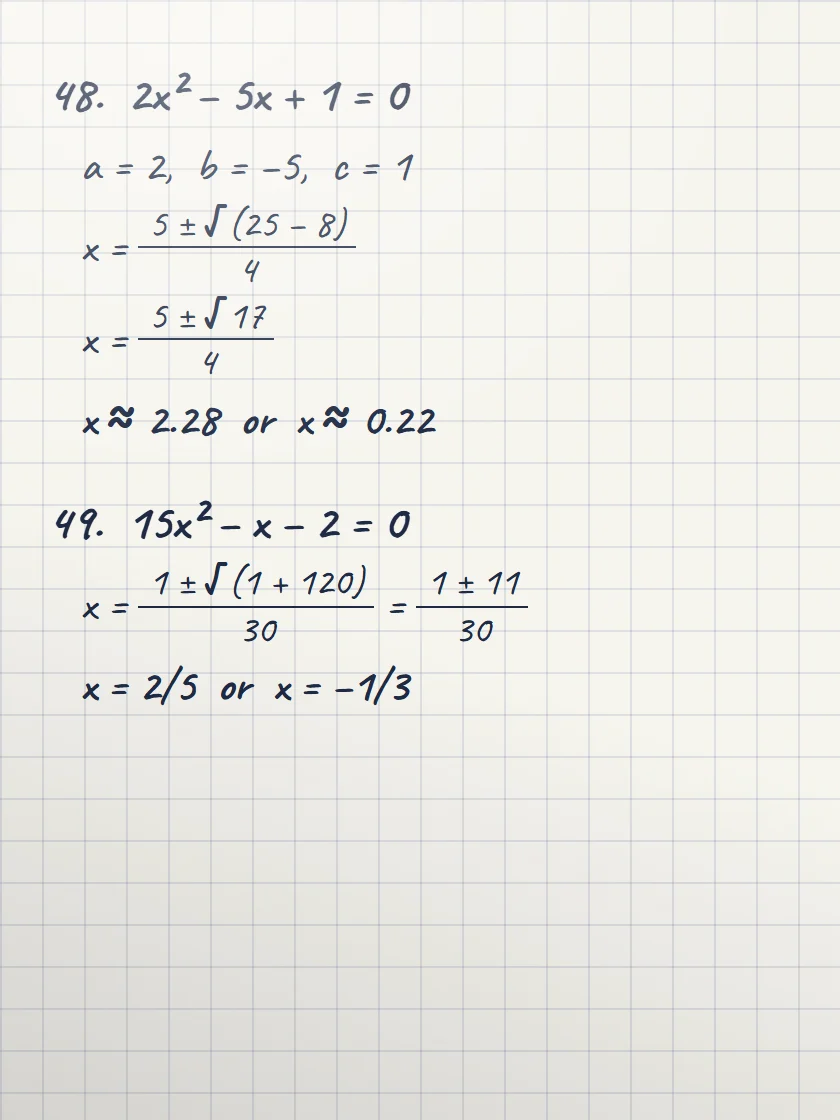 48. 2x² – 5x + 1 = 0
a = 2, b = –5, c = 1
x = (5 ± √(25 – 8))/4
x = (5 ± √17)/4
x ≈ 2.28 or x ≈ 0.22
49. 15x² – x – 2 = 0
x = (1 ± √(1 + 120))/30 = (1 ± 11)/30
x = 2/5 or x = –1/3